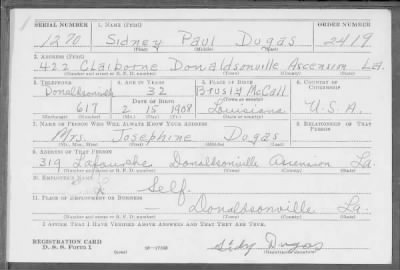 SERIAL NUMBER 1. NAME (Print) ORDER NUMBER
1270 Sidney Paul Dugas 2419
(First) (Middle) (Last)
2. ADDRESS (Print)
422 Claiborne Donaldsonville Ascension La.
(Number and street or R. F. D. number) (Town) (County) (State)
3. TELEPHONE 4. AGE IN YEARS 5. PLACE OF BIRTH 6. COUNTRY OF CITIZENSHIP
Donaldsonville 32 McCall
DATE OF BIRTH (Town or county)
617 2 15 1908 Louisiana U.S.A.
(Exchange) (Number) (Mo.) (Day) (Yr.) (State or country)
7. NAME OF PERSON WHO WILL ALWAYS KNOW YOUR ADDRESS 8. RELATIONSHIP OF THAT PERSON
Mrs. Josephine Dugas
(Mr., Mrs., Miss) (First) (Middle) (Last)
9. ADDRESS OF THAT PERSON
319 Lafourche Donaldsonville Ascension La.
(Number and street or R. F. D. number) (Town) (County) (State)
10. EMPLOYER'S NAME
Self.
11. PLACE OF EMPLOYMENT OR BUSINESS
Donaldsonville La.
(Number and street or R. F. D. number) (Town) (County) (State)
I AFFIRM THAT I HAVE VERIFIED ABOVE ANSWERS AND THAT THEY ARE TRUE.
REGISTRATION CARD
D. S. S. Form 1 Dugas
(Registrant's signature)